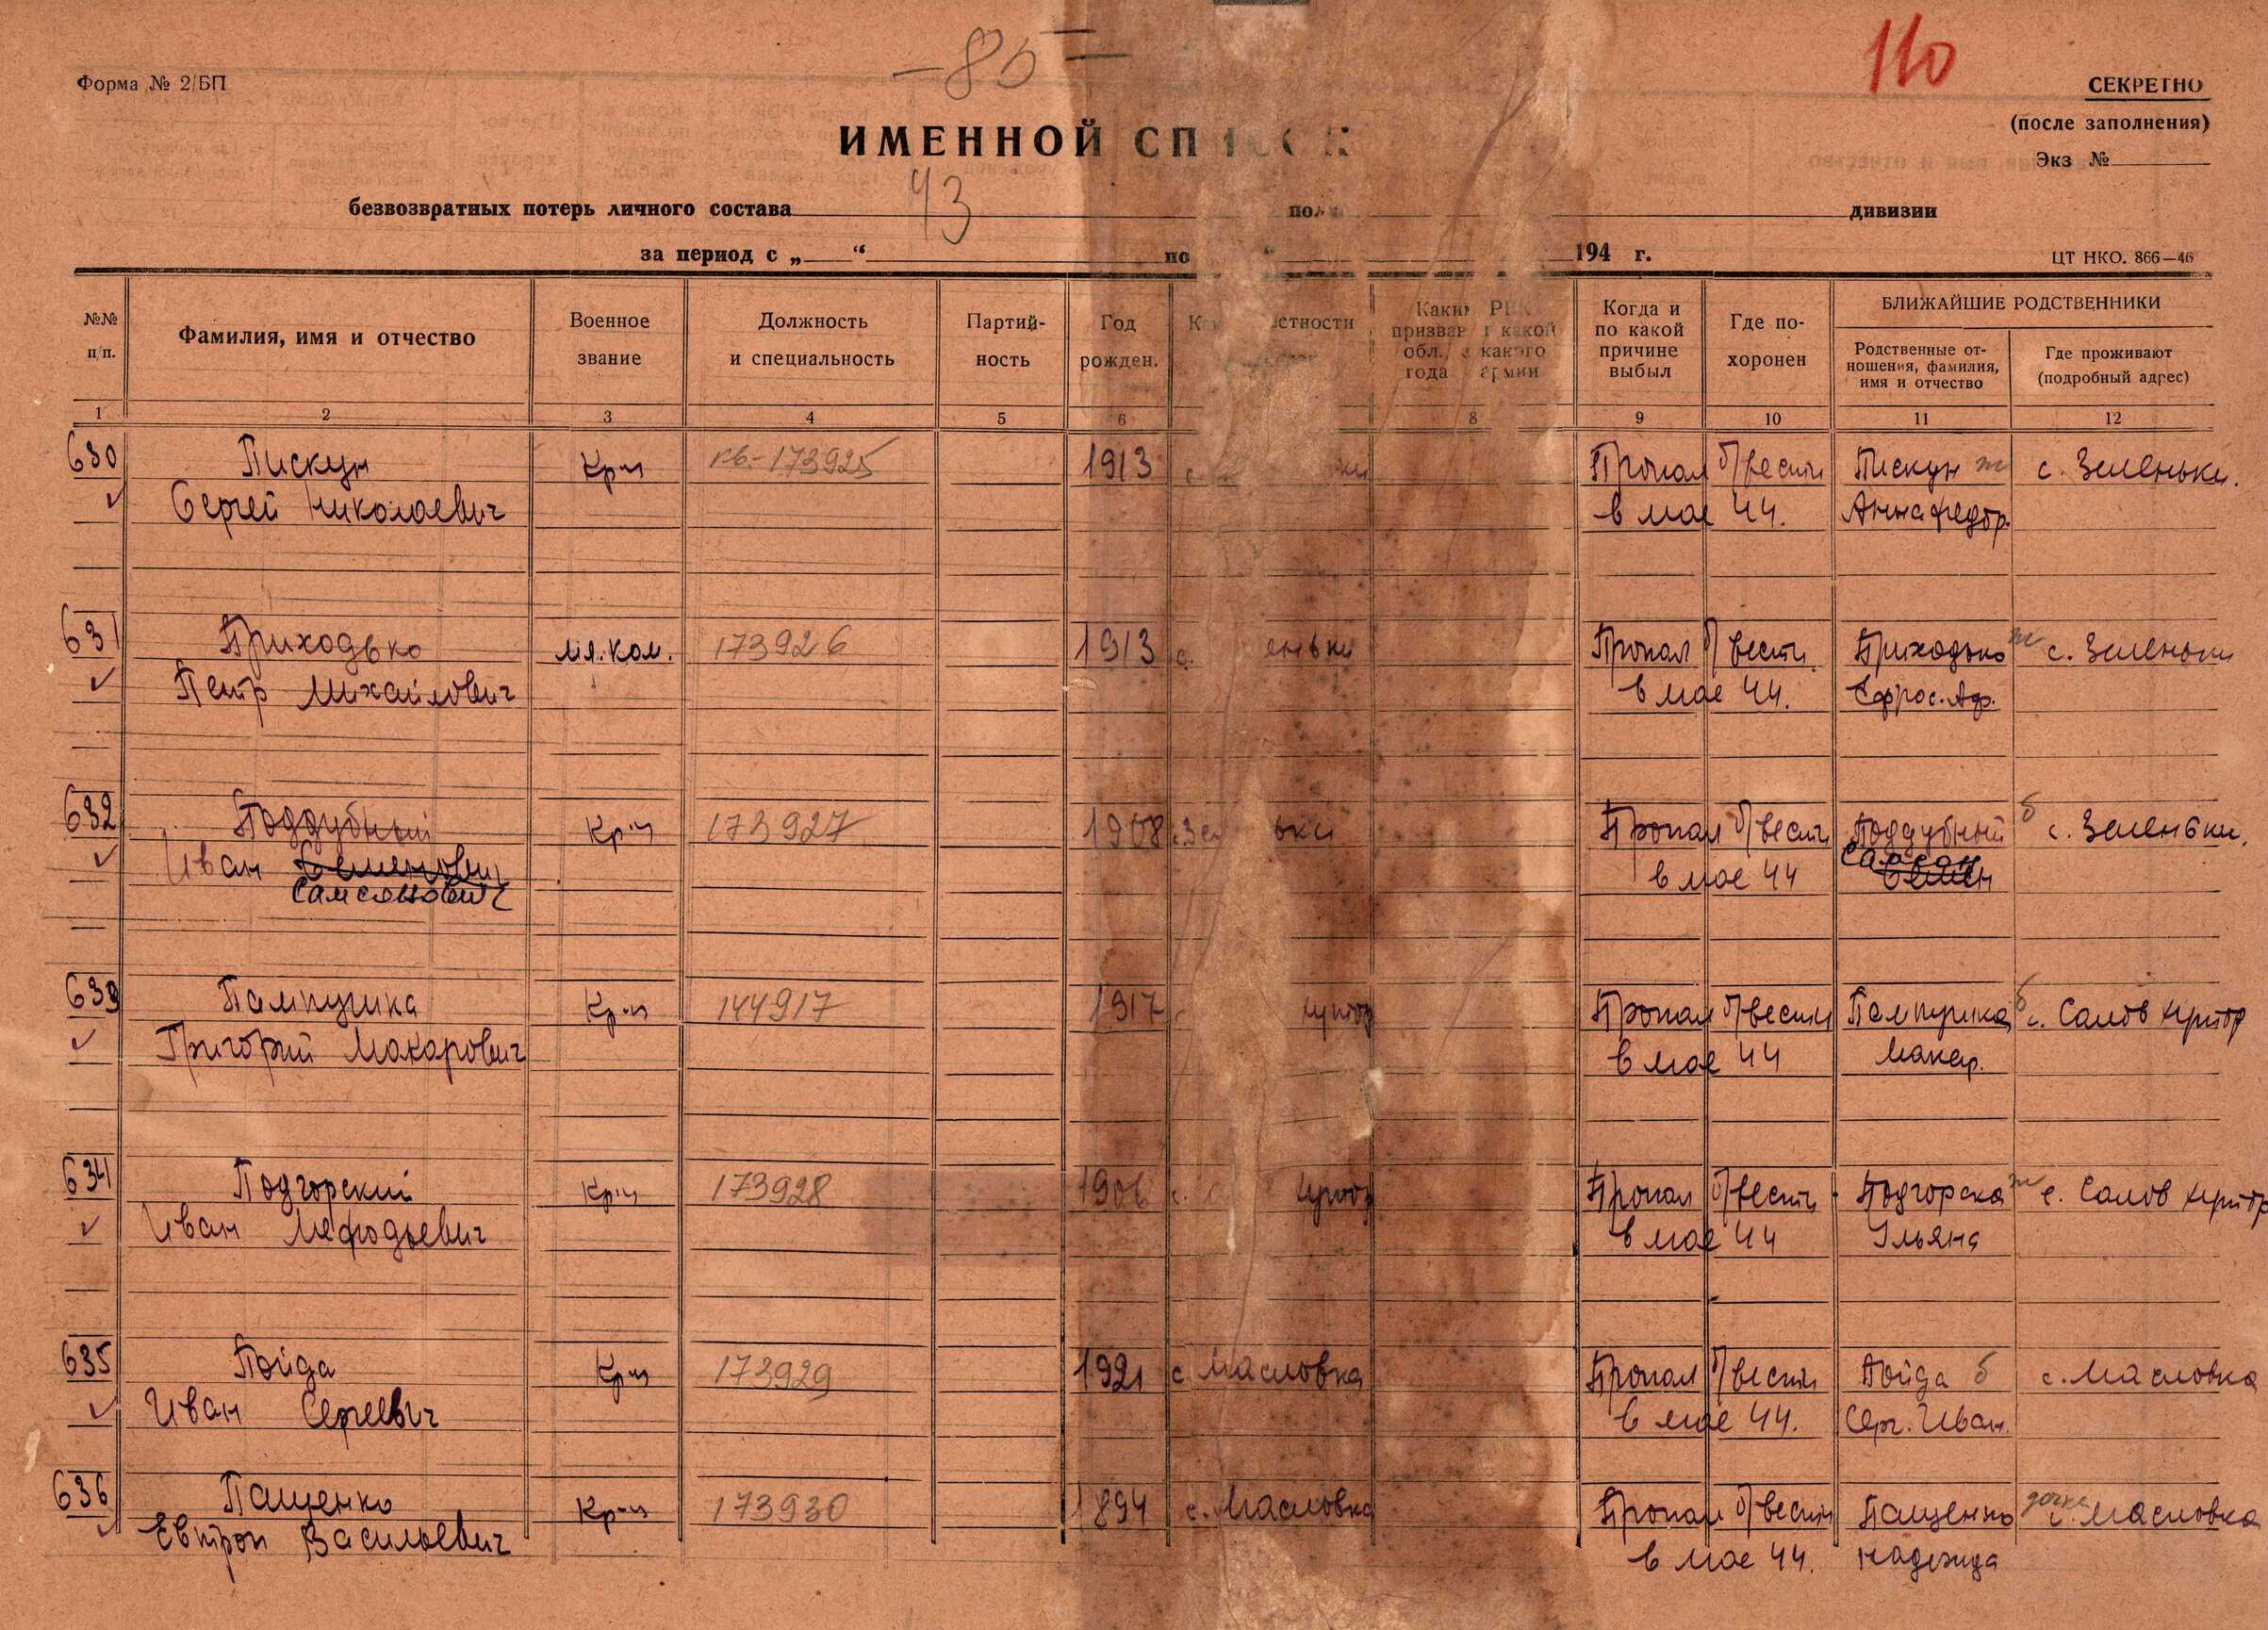 -85-
110
Форма № 2/БП
СЕКРЕТНО
(после заполнения)
Экз №
ИМЕННОЙ СПИСОК
43
безвозвратных потерь личного состава полка дивизии
за период с „ “ по “ 194 г.
ЦТ НКО. 866—46
№№ п/п.
Фамилия, имя и отчество
Военное звание
Должность и специальность
Партий-ность
Год рожден.
естности
Каким РВК призван какой обл., какого года армии
Когда и по какой причине выбыл
Где по-хоронен
БЛИЖАЙШИЕ РОДСТВЕННИКИ
Родственные от-ношения, фамилия, имя и отчество
Где проживают (подробный адрес)
1 2 3 4 5 6 8 9 10 11 12
630 Пискун Кр-ц кв.-173925 1913 с. ки Пропал б/вести Пискун ж с. Зеленьки.
Сергей Николаевич в мае 44. Анна Федор.
631 Приходько мл.ком. 173926 1913 с. еньки Пропал б/вести. Приходько ж с. Зеленьки
Петр Михайлович в мае 44. Ефрос. Аф.
632 Поддубный Кр-ц 173927 1908 с. Зе ьки Пропал б/вести Поддубный б с. Зеленьки.
Иван Семенович в мае 44 Самсон
Самсонович Семен
633 Пампушка Кр-ц 144917 1917 хутор Пропал б/вести Пампушка б с. Салов хутор
Григорий Макарович в мае 44 Макар.
634 Подгорский Кр-ц 173928 1906 с. хутор Пропал б/вести Подгорска ж с. Салов хутор
Иван Мефодьевич в мае 44 Ульяна
635 Пойда Кр-ц 173929 1921 с Масловка Пропал б/вести Пойда б с. Масловка
Иван Сергеевич в мае 44. Серг. Иван.
636 Пащенко Кр-ц 173930 1894 с. Масловка Пропал б/вести Пащенко дочка с. Масловка
Евтроп Васильевич в мае 44. Надежда